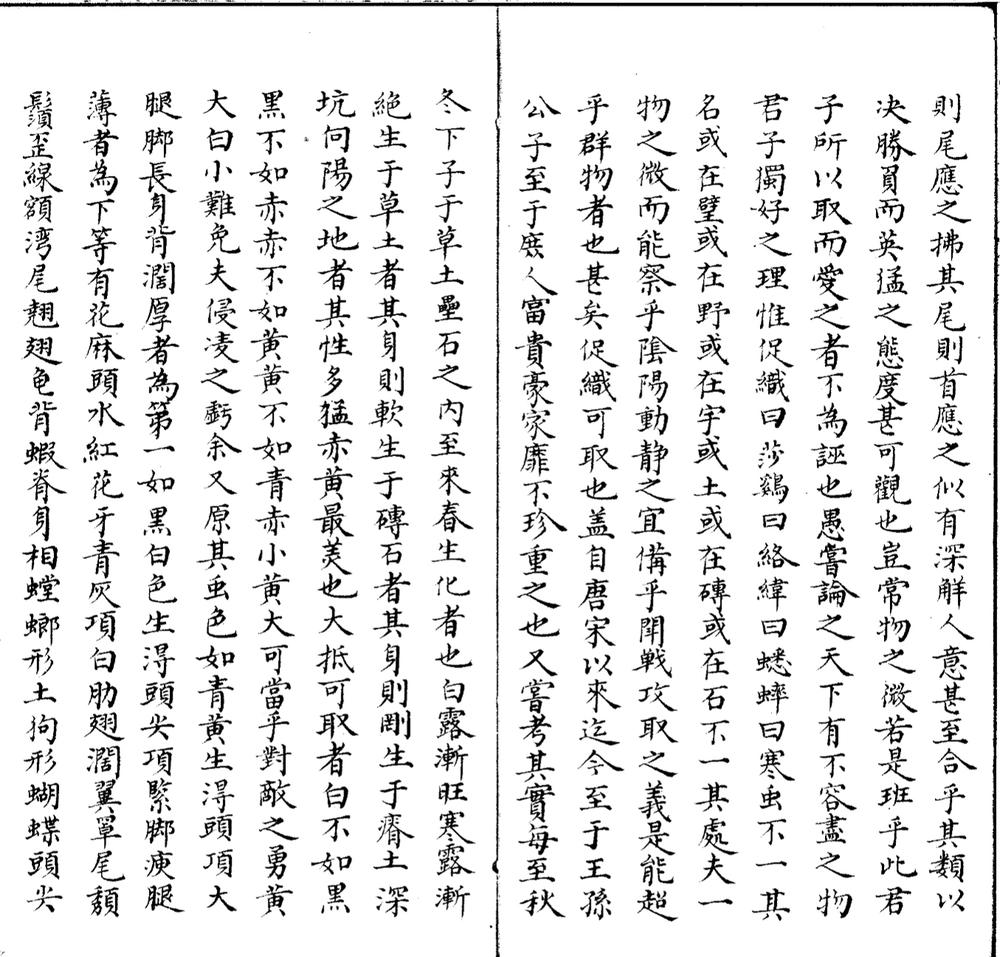 則尾應之拂其尾則首應之似有深解人意甚至合乎其類以
决勝負而英猛之態度甚可觀也豈常物之微若是班乎此君
子所以取而愛之者不為誣也愚嘗論之天下有不容盡之物
君子獨好之理惟促織曰莎鷄曰絡緯曰蟋蟀曰寒虫不一其
名或在壁或在野或在宇或土或在磚或在石不一其處夫一
物之微而能察乎陰陽動静之宜備乎鬪戦攻取之義是能超
乎群物者也甚矣促織可取也盖自唐宋以來迄今至于王孫
公子至于庶人富貴豪家靡不珍重之也又嘗考其實每至秋
冬下子于草土壘石之内至來春生化者也白露漸旺寒露漸
絶生于草土者其身則軟生于磚石者其身則剛生于瘠土深
坑向陽之地者其性多猛赤黄最美也大抵可取者白不如黑
黑不如赤赤不如黄黄不如青赤小黄大可當乎對敵之勇黄
大白小難免夫侵凌之虧余又原其虫色如青黄生淂頭項大
腿脚長身背濶厚者為第一如黑白色生淂頭尖項緊脚瘐腿
薄者為下等有花麻頭水紅花牙青灰項白肋翅濶翼單尾頽
鬚歪線額湾尾翹翅龟背蝦脊身相螳螂形土狗形蝴蝶頭尖